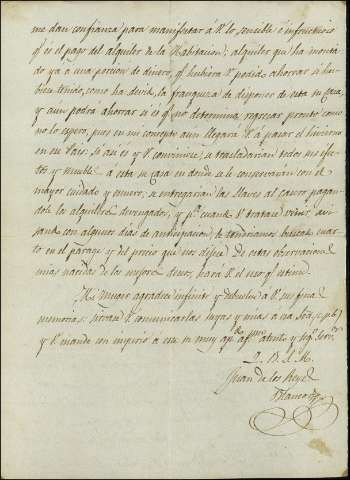 me dan confianza para manifestar á V. lo sensible é infructuoso
q.e es el pago del alquiler de la Habitacion; alquiler que ha monta-
do ya a una porcion de dinero, q.e hubiera V. podido ahorrar si hu-
biera tenido, como ha devido, la franqueza de disponer de esta su Casa,
y aun podrá ahorrar si es q.e no determina regresar pronto como
no lo espero, pues en mi concepto aun llegará V. á pasar el hinvierno
en su Pais: si asi es y V. conviniese, se trasladarian todos sus efec-
tos y mueble a esta su casa en donde se le conservarian con el
mayor cuidado y esmero, se entregarian las llaves al casero pagan-
dole los alquileres devengados, y p.a cuando V. tratase venir avi-
sando con algunos dias de anticipacion, le tendriamos buscado cuar-
to en el parage y del precio que nos dijese. De estas observaciones
mias nacidas de los mejores deseos, hará V. el uso q.e estime.
Mi muger agradece infinito y debuelve a V. sus finas
memorias: sirvase V. comunicarlas suyas y mias a sus Sra (c.p.b.)
y V. mande con imperio a este su muy ap.do af.mo atento y seg.o serv.or
Q. B. S. M.
Juan de los Reyes
Blanco